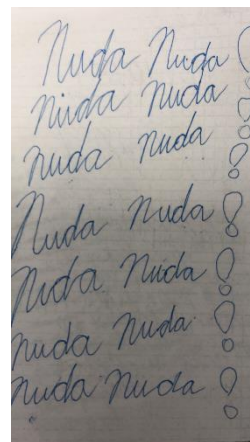 Nuda Nuda!
Nuda Nuda!
nuda nuda!
Nuda nuda!
Nuda Nuda!
nuda Nuda!
nuda nuda!